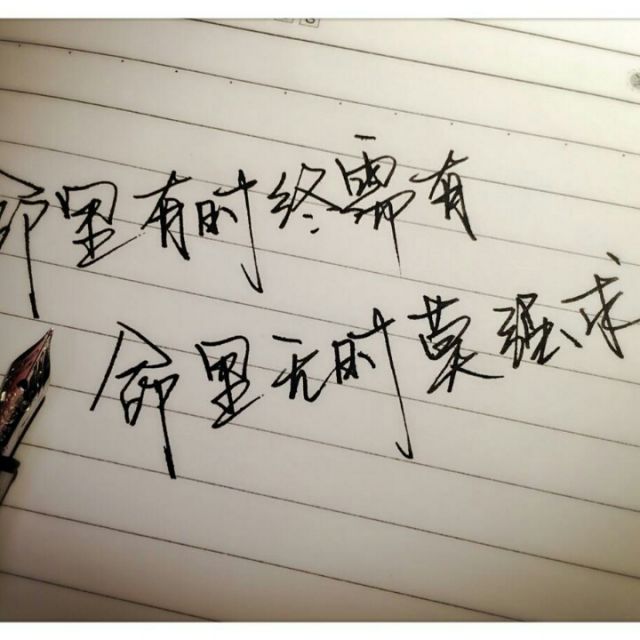 命里有时终需有
命里无时莫强求